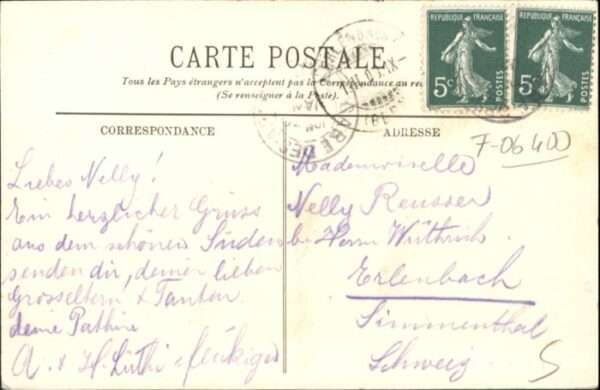 CARTE POSTALE
Tous les Pays étrangers n'acceptent pas la Correspondance au
(Se renseigner à la Poste).
RÉPUBLIQUE FRANÇAISE
5c
POSTES
RÉPUBLIQUE FRANÇAISE
5c
POSTES
CORRESPONDANCE
Liebes Nelly!
Ein herzlicher Gruss
aus dem schönen Süden
senden dir, deine lieben
Grosseltern & Tanten
deine Pathin
A. & H. Lüthi-Flükiger
ADRESSE
7-06 400
Mademoiselle
Nelly Reusser
bei Herrn Wüthrich
Erlenbach
Simmenthal
Schweiz